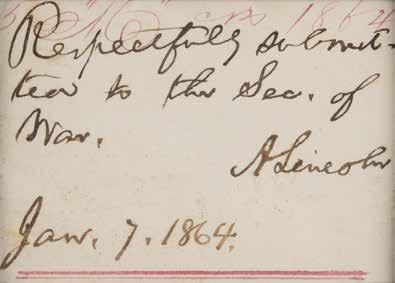 Respectfully submit-
ted to the Sec. of
War.
A. Lincoln
Jan. 7. 1864.